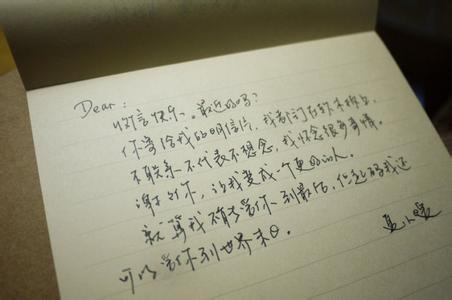 Dear:
收信快乐。最近好吗?
你寄给我的明信片,我都钉在软木板上,
不联系不代表不想念,我怀念很多事情。
谢谢你,让我变成一个更好的人。
就算我不能爱你到最后,但起码我还
可以爱你到世界末日。
夏小